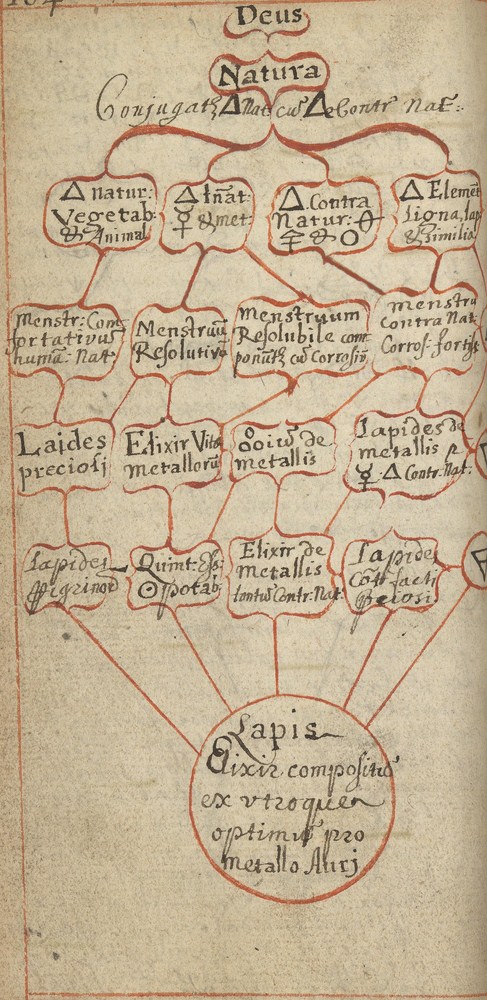 Deus
Natura
Conjugatʒ △ Nat cū △ e Contr Nat:
△ natur:
Vegetab:
& Animal
△ Ināt:
☿ & met:
△ Contra
Natur:
△ Element
ligna, lap
& Similia
Menstr: Com
fortativus
humā: Nat
Menstruū
Resolutivū
Menstruum
Resolubile com
ponūtʒ cū Corrosiv
menstru
contra Nat
Corros: fortiss
Laides
preciosi
Elixir Vitæ
metallorū
de
metallis
Lapides de
metallis
☿ · △ Contr: Nat:
Lapides
Quint: Ess:
☉ potab:
Elixir de
Metallis
Contr: Nat
Lapides
facti
Lapis
Elixir compositū
ex utroque
optimū pro
metallo Aurj